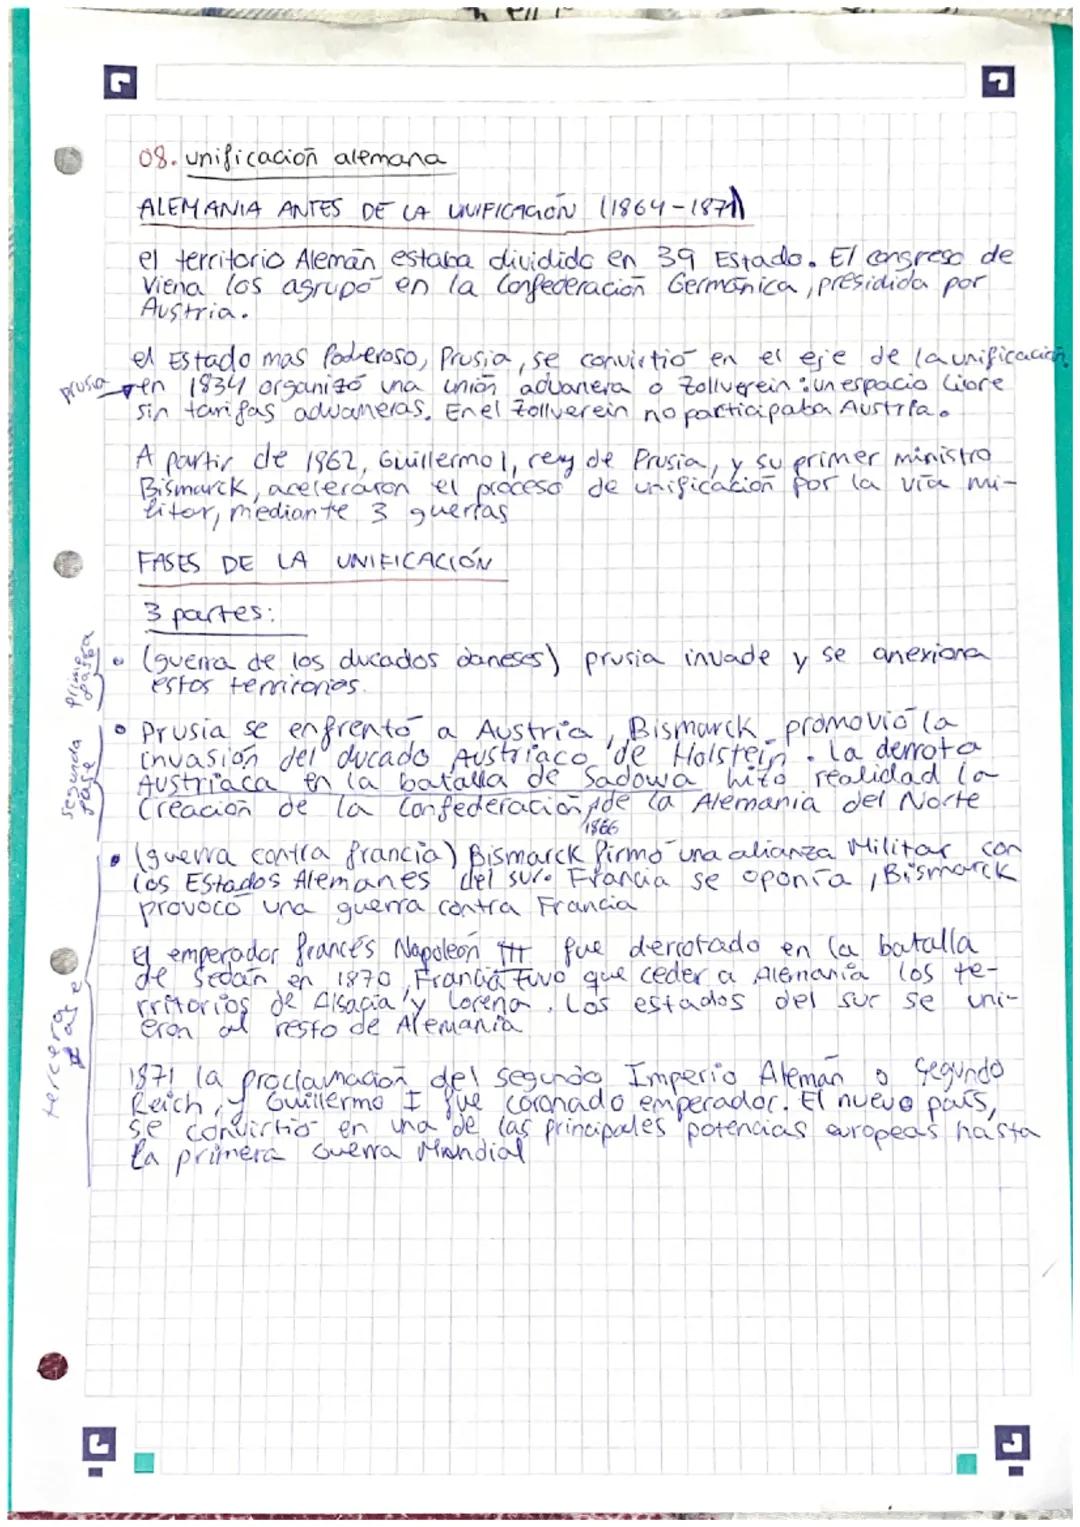 08. unificación alemana
ALEMANIA ANTES DE LA UNIFICACIÓN (1864-1871)
el territorio Alemán estaba dividido en 39 Estado. El congreso de
Viena los agrupó en la Confederación Germánica, presidida por
Austria.
el Estado mas Poderoso, Prusia, se convirtió en el eje de la unificación
prusia en 1834 organizó una unión aduanera o Zollverein: un espacio libre
sin tarifas aduaneras. En el Zollverein no participaba Austria.
A partir de 1862, Guillermo I, rey de Prusia, y su primer ministro
Bismarck, aceleraron el proceso de unificación por la vía mi-
litar, mediante 3 guerras
FASES DE LA UNIFICACIÓN
3 partes:
primera fase
• (guerra de los ducados daneses) prusia invade y se anexiona
estos territorios.
segunda fase
• Prusia se enfrentó a Austria, Bismarck promovió la
invasión del ducado Austriaco de Holstein. la derrota
Austriaca en la batalla de Sadowa hizo realidad la
Creación de la Confederación de la Alemania del Norte
1866
tercera fase
• (guerra contra francia) Bismarck firmó una alianza Militar con
los Estados Alemanes del sur. Francia se oponía, Bismarck
provocó una guerra contra Francia
El emperador francés Napoleón III fue derrotado en la batalla
de Sedán en 1870, Francia tuvo que ceder a Alemania los te-
rritorios de Alsacia y Lorena. Los estados del sur se uni-
eron al resto de Alemania
1871 la proclamación del segundo Imperio Alemán o Segundo
Reich, y Guillermo I fue coronado emperador. El nuevo país,
se convirtió en una de las principales potencias europeas hasta
la primera Guerra Mundial